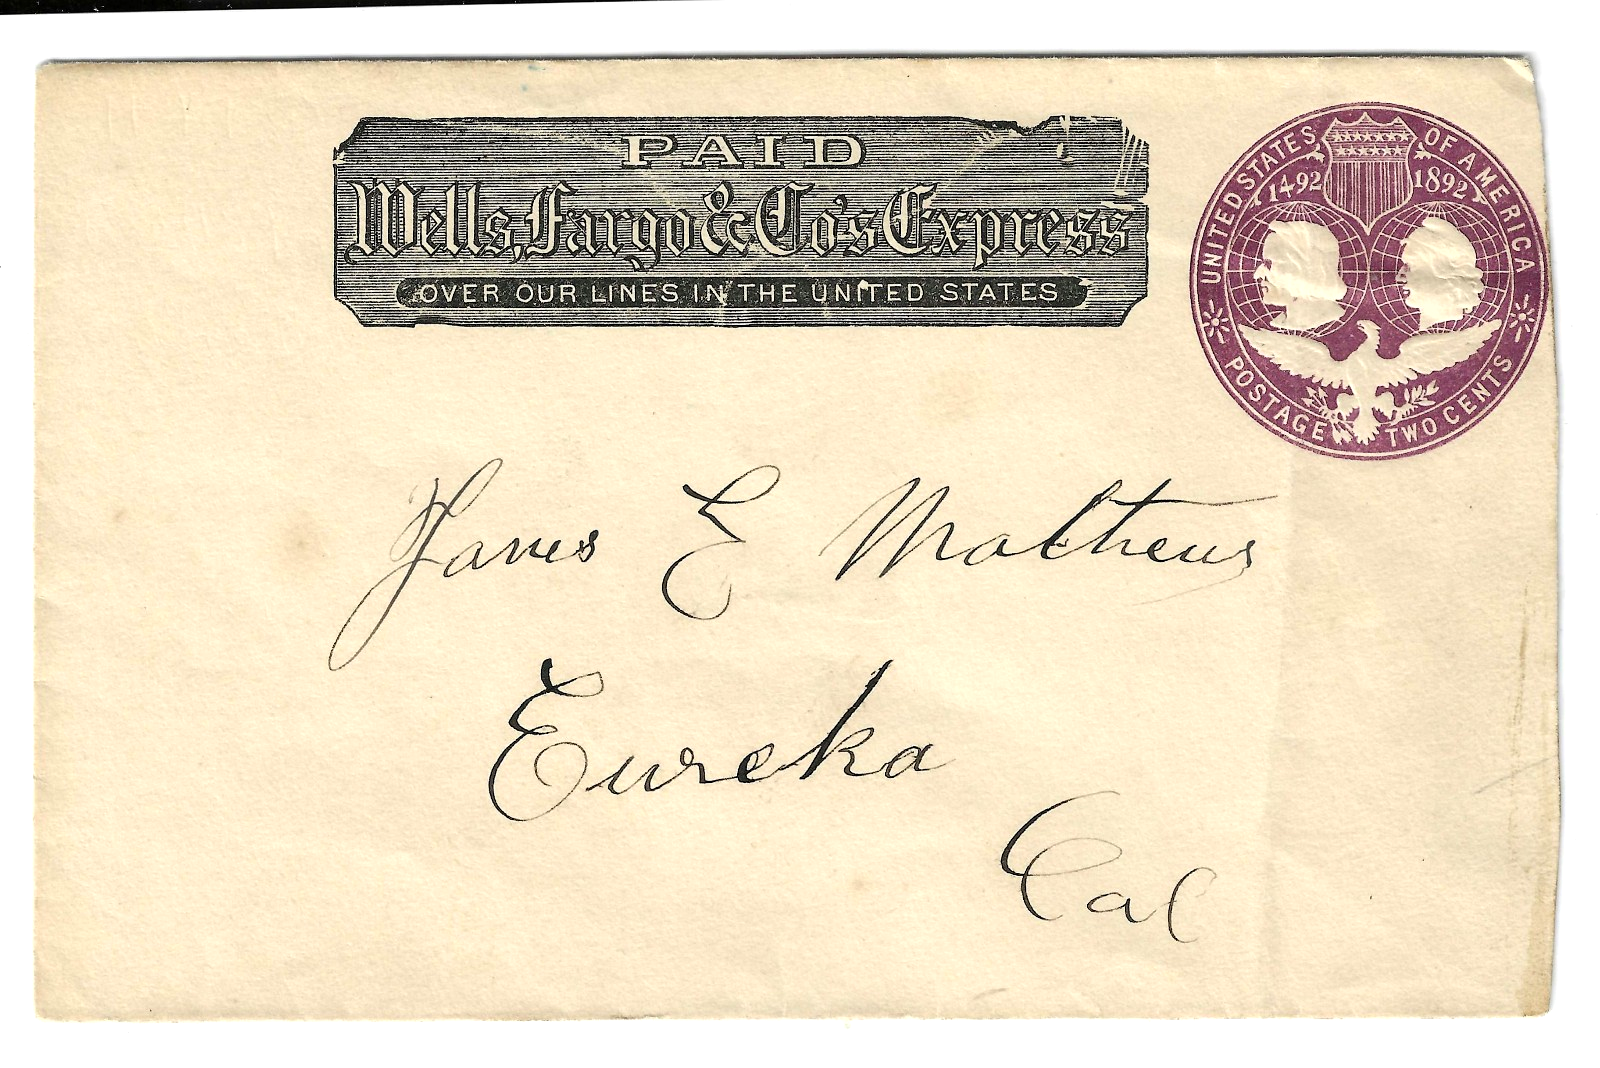 PAID
Wells, Fargo & Co's Express
OVER OUR LINES IN THE UNITED STATES
UNITED STATES OF AMERICA
1492 1892
POSTAGE TWO CENTS
James E Mathews
Eureka
Cal